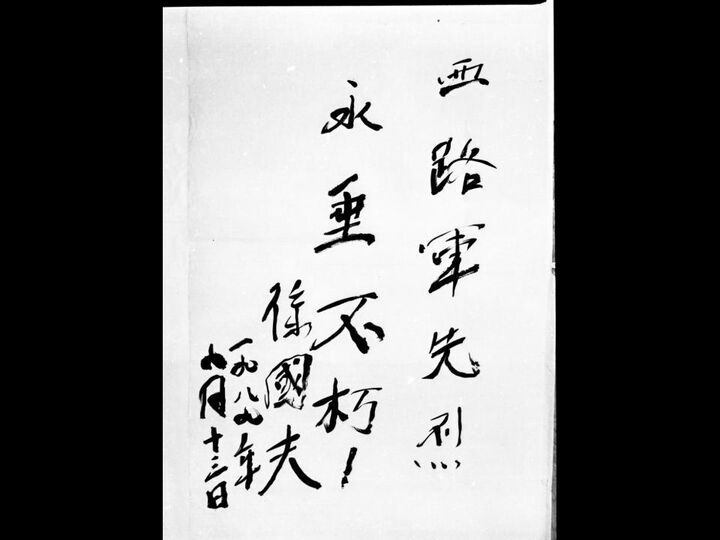 西路軍先烈
永垂不朽！
徐國夫
一九八九年
九月十三日